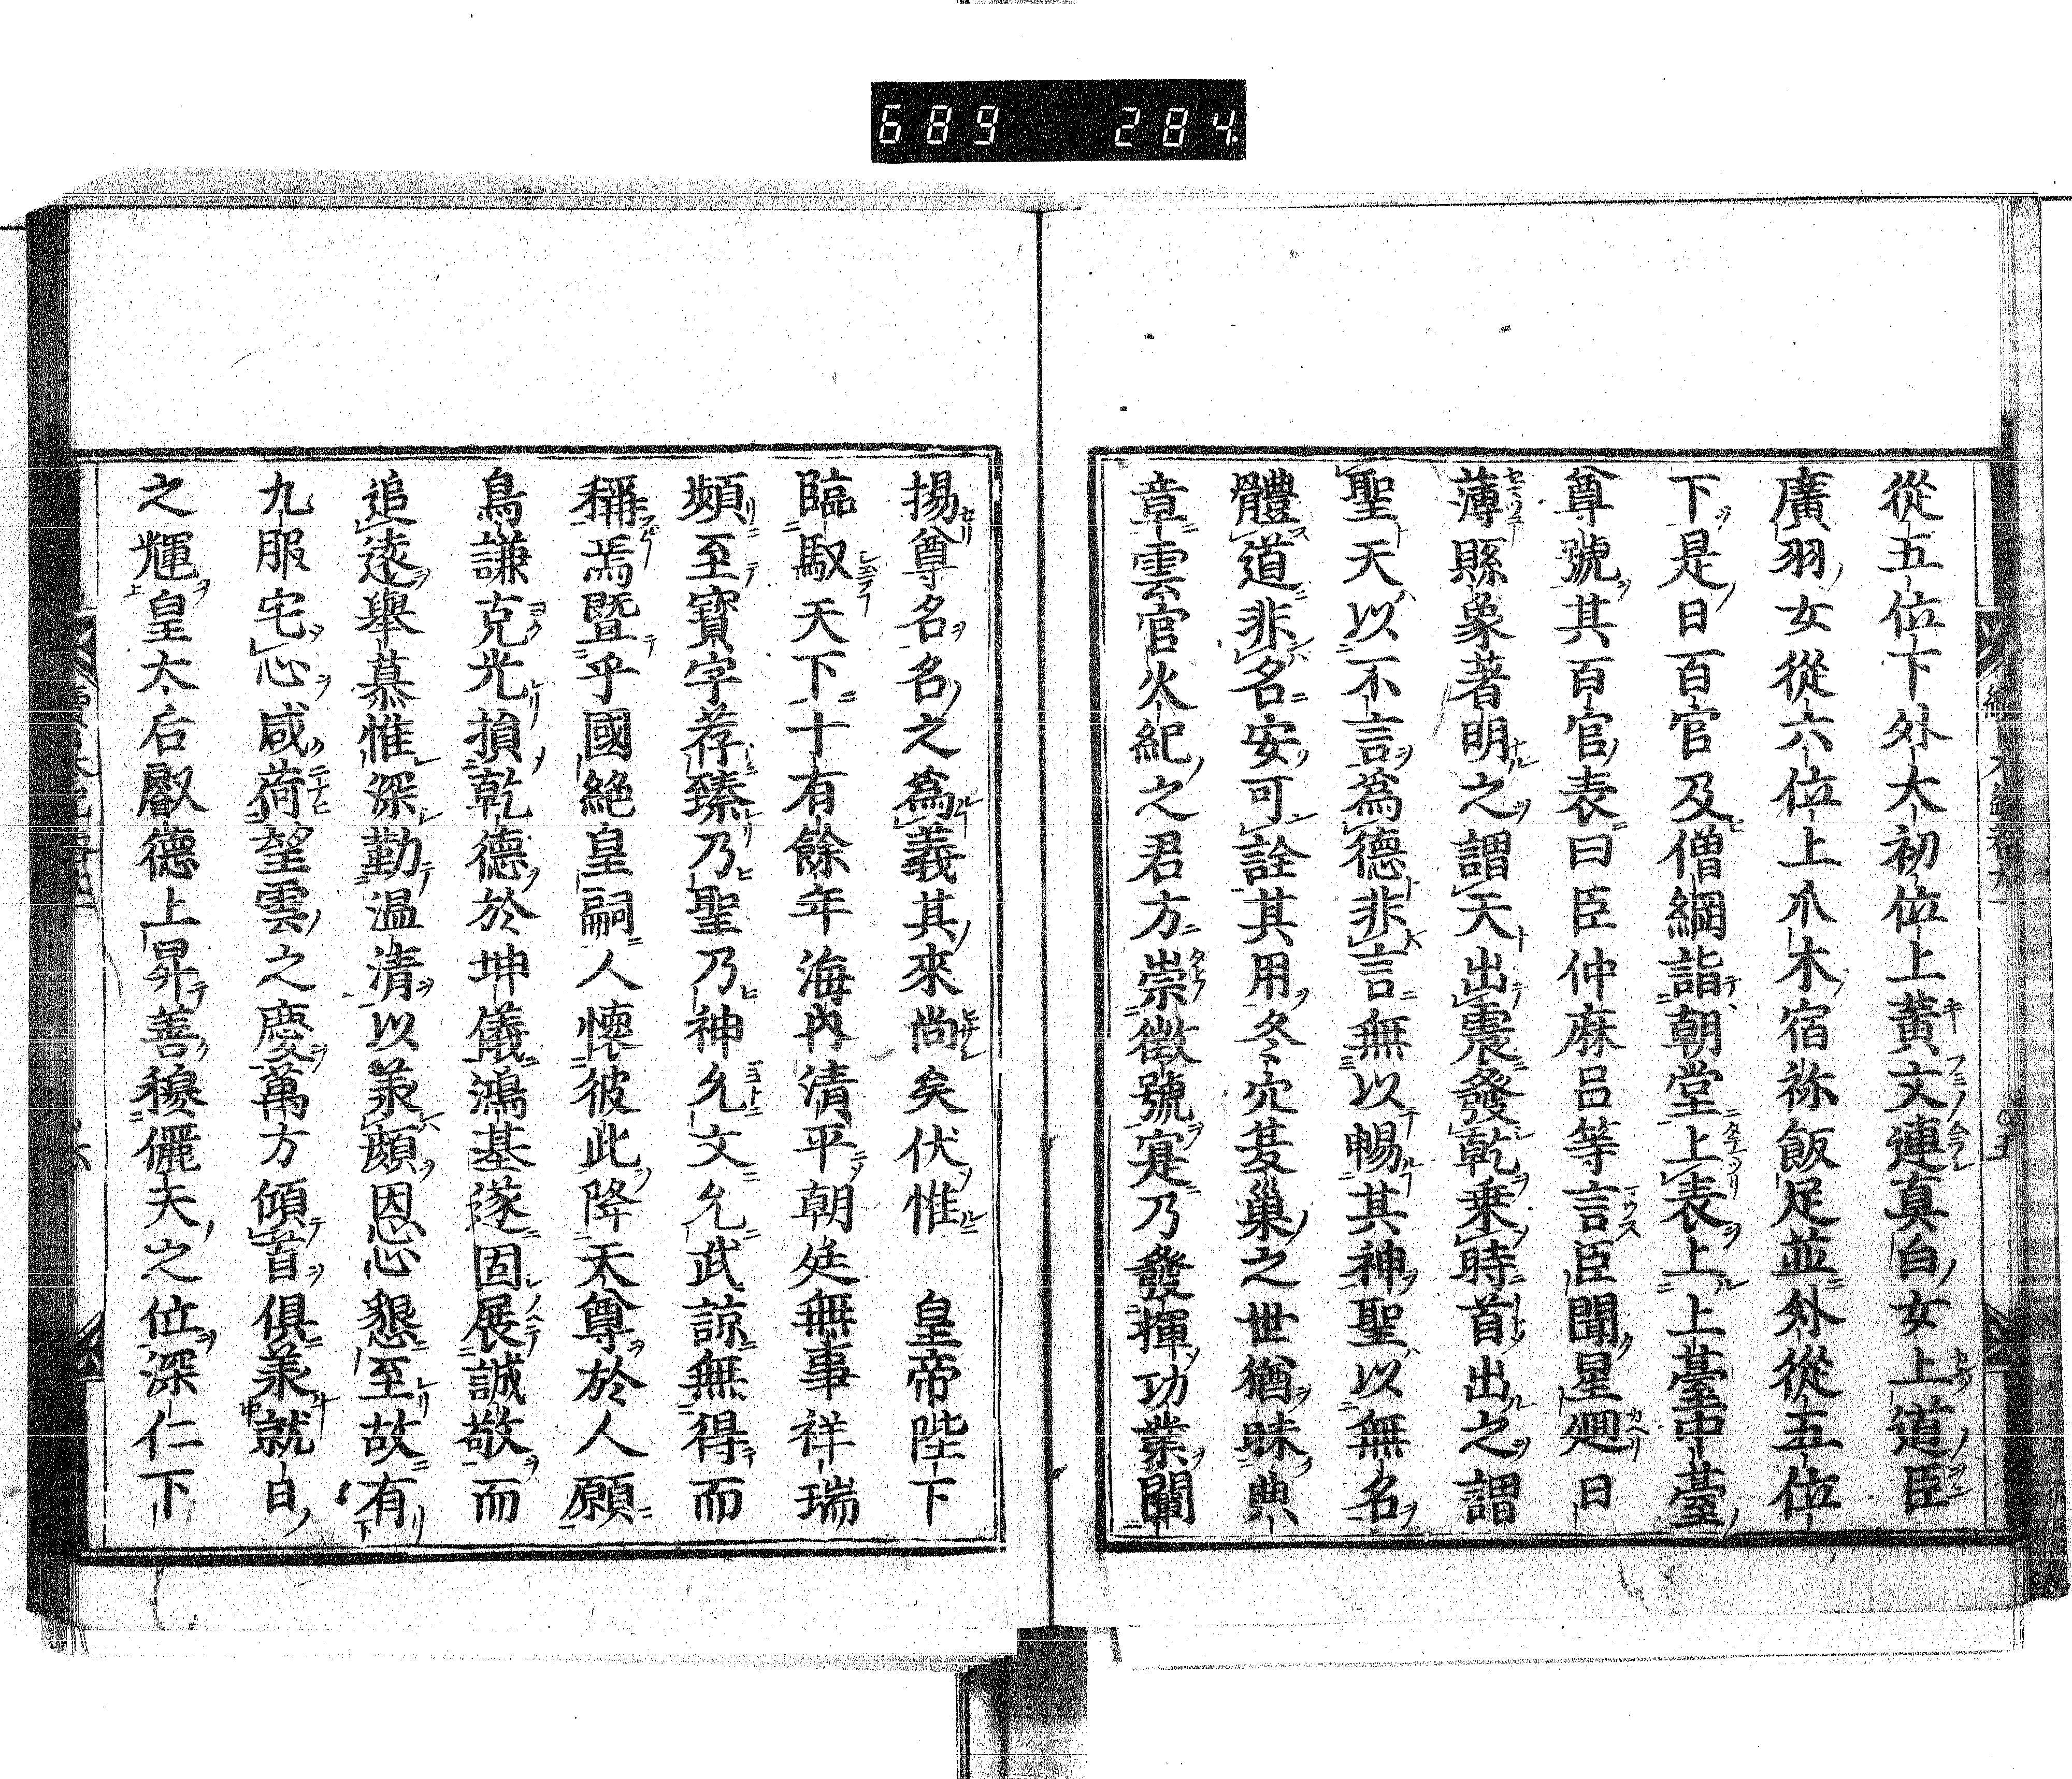 689 284.
從五位下外大初位上黃文連真白女上道臣
廣羽女從六位上爪木宿祢飯足並外從五位
下是日百官及僧綱詣朝堂上表上上臺中臺
尊號其百官表曰臣仲麻呂等言臣聞星廻日
薄懸象著明之謂天出震發乾乗時首出之謂
聖天以不言為德非言無以暢其神聖以無名
體道非名安可詮其用冬穴夏巢之世猶昧典
章雲官火紀之君方崇徽號寔乃發揮功業闡
揚尊名名之為義其來尚矣伏惟　皇帝陛下
臨馭天下十有餘年海內清平朝廷無事祥瑞
頻至寶字荐臻乃聖乃神允文允武諒無得而
稱焉暨乎國絕皇嗣人懷彼此降天尊於人願
鳥謙克光損乾德於坤儀鴻基遂固展誠敬而
追遠舉慕惟深勤溫清以兼顔恩心懇至故有
九服宅心咸荷望雲之慶萬方傾首俱兼就日
之輝皇太后叡德上昇善穆儷天之位深仁下
六